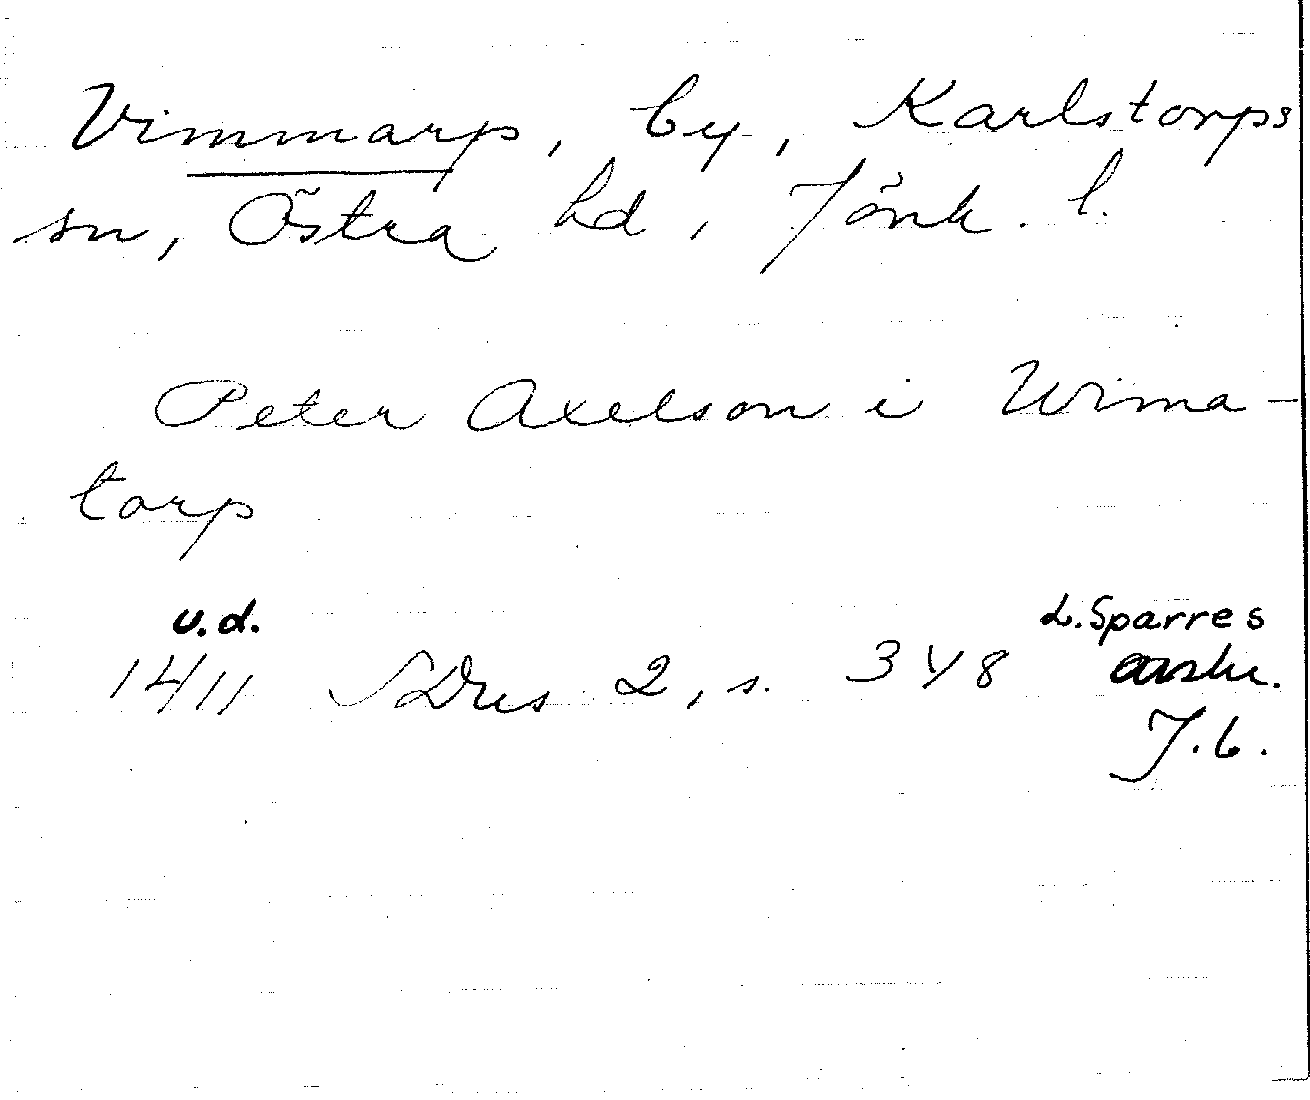 Vimmarp, by, Karlstorps
sn, Östra hd, Jönk. l.
Peter Axelson i Wima-
torp
u.d.
1411 SDns 2, s. 348
L. Sparres
avskr.
J.b.